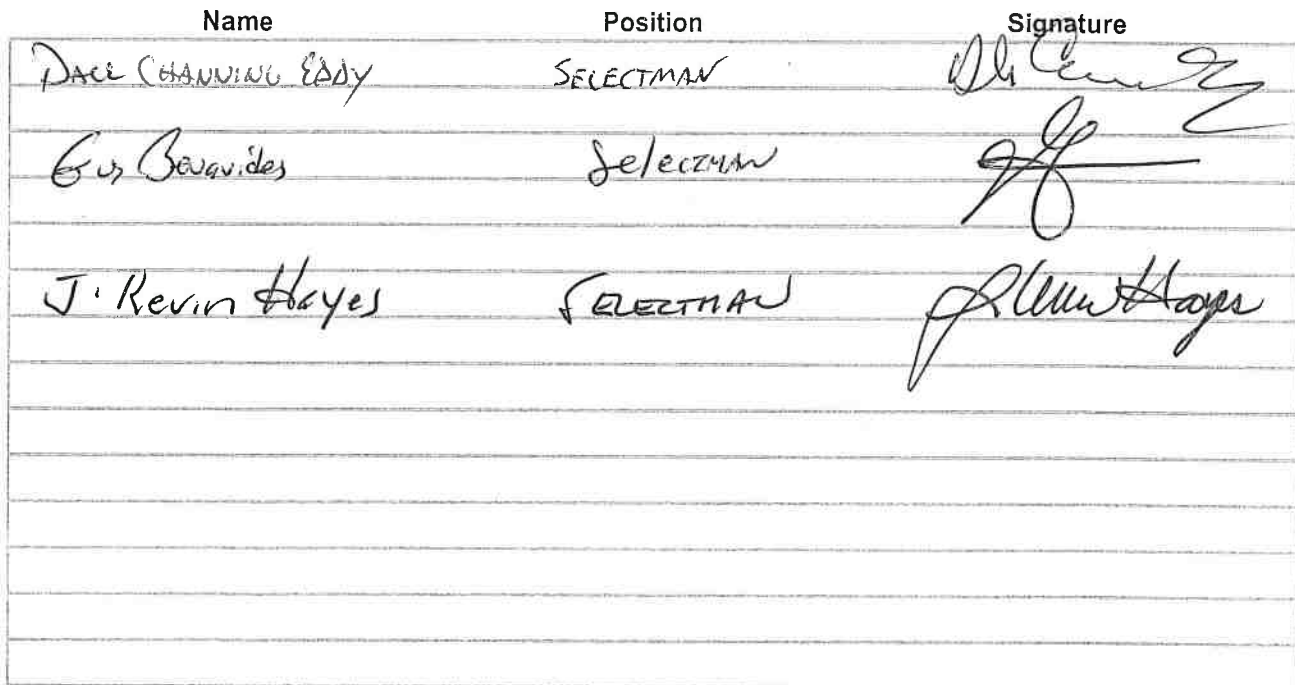 Name Position Signature
DALE CHANNING EDDY SELECTMAN
Gus Benavides Selectman
J. Kevin Hayes SELECTMAN J. Kevin Hayes